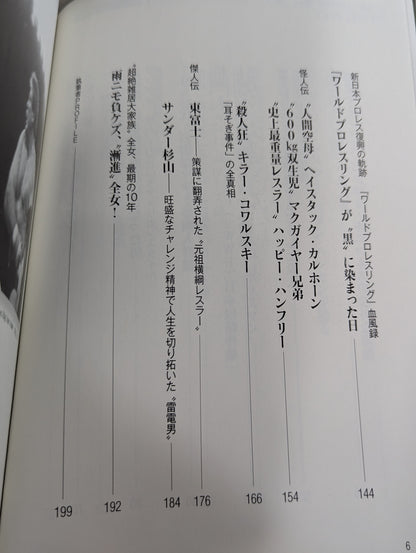 新日本プロレス復興の軌跡　『ワールドプロレスリング』血風録
『ワールドプロレスリング』が〝黒〟に染まった日 144
怪人伝
〝人間空母〟ヘイスタック・カルホーン
〝600kg双生児〟マクガイヤー兄弟
〝史上最重量レスラー〟ハッピー・ハンフリー 154
〝殺人狂〟キラー・コワルスキー
「耳そぎ事件」の全真相 166
傑人伝
東富士――策謀に翻弄された〝元祖横綱レスラー〟 176
サンダー杉山――旺盛なチャレンジ精神で人生を切り拓いた〝雷電男〟 184
〝超絶雑居大家族〟全女、最期の10年
雨ニモ負ケズ、〝漸進〟全女！ 192
執筆者PROFILE 199
6